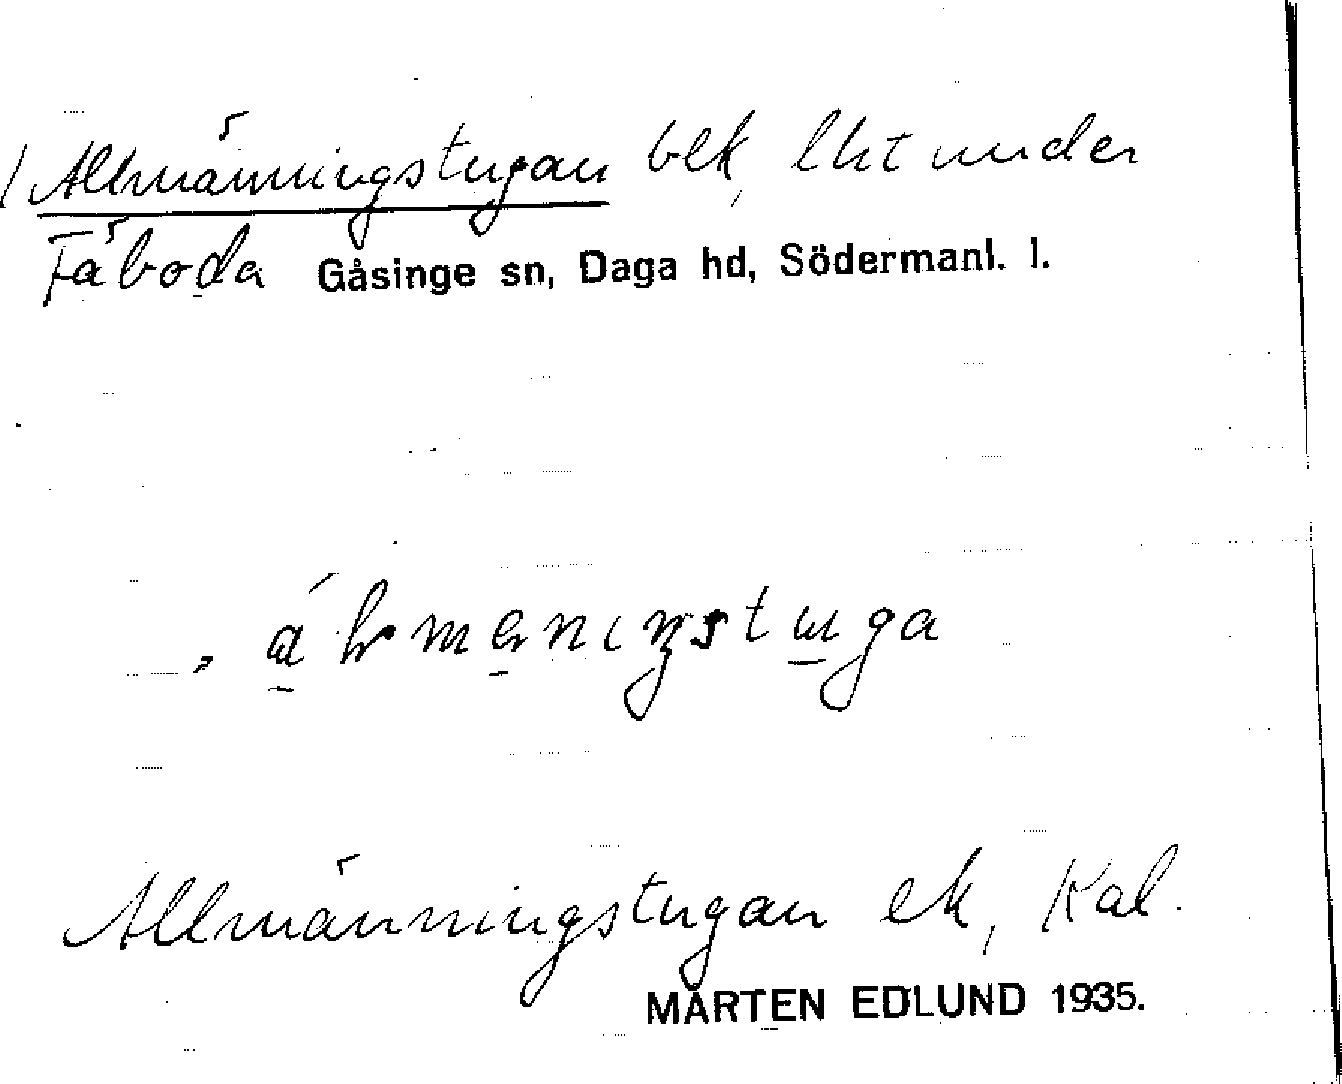 Allmänningstugan bek, lht under
Fäboda Gåsinge sn, Daga hd, Södermanl. l.
Allmänningstugan ek, Kal.
MÅRTEN EDLUND 1935.